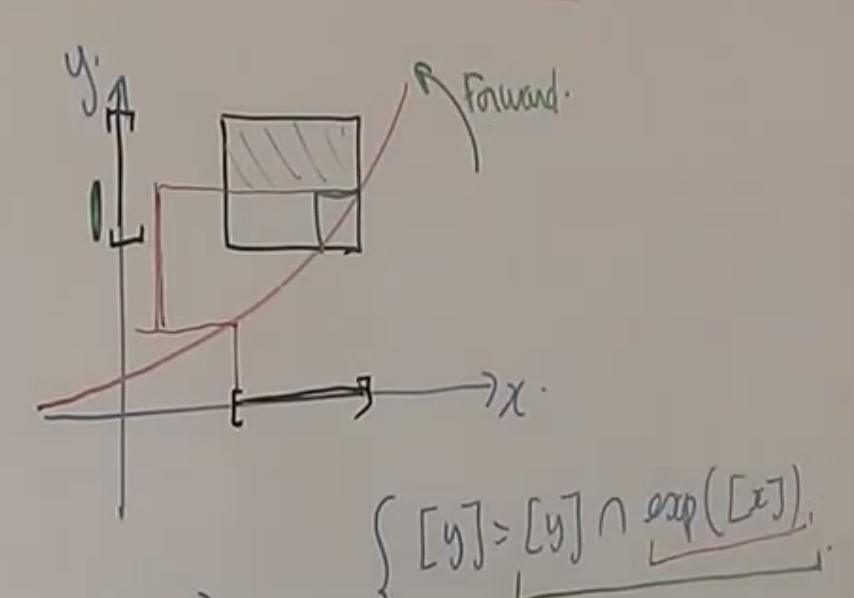 y
Forward.
x
{ [y] = [y] ∩ exp([x]).